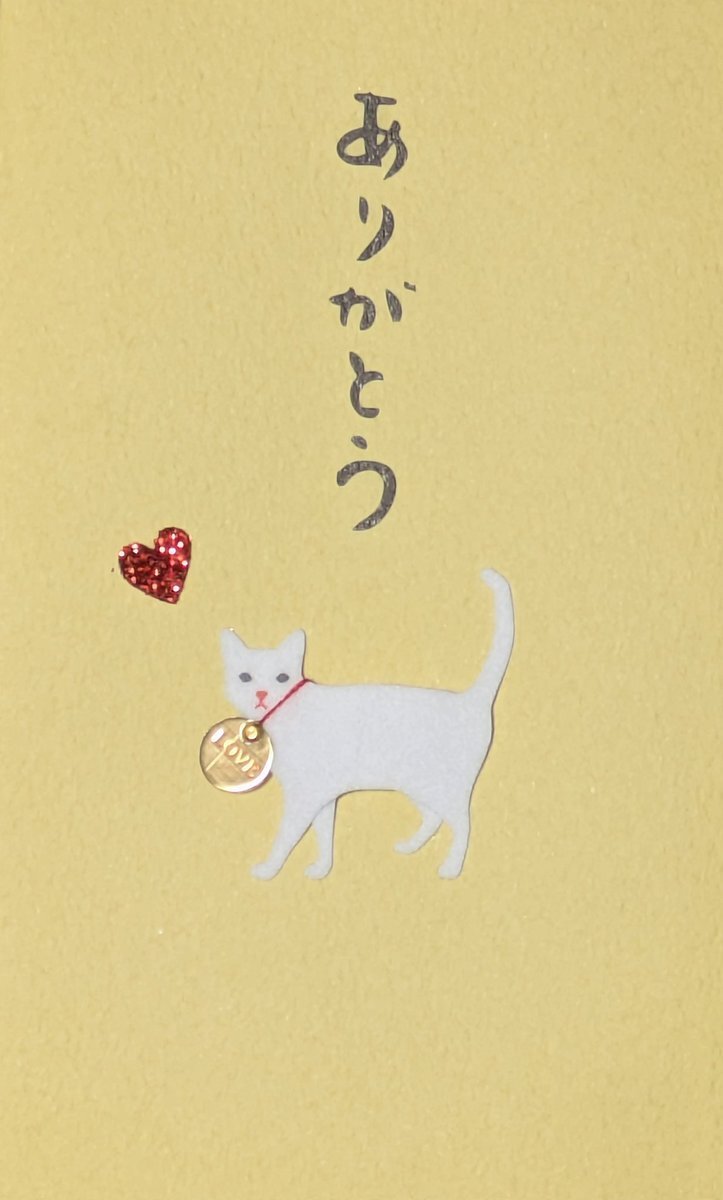 ありがとう
LOVE